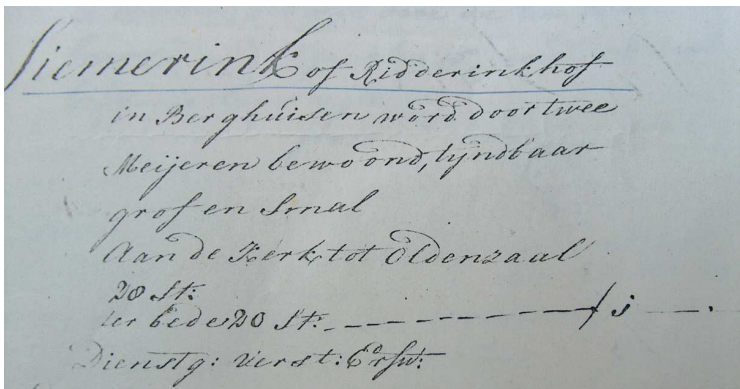 Siemerink of Ridderinkhof
in Berghuisen word door twee
Meijeren bewoond, tyndbaar
grof en Smal
Aan de Kerk tot Oldenzaal
20 St:
ter bede 20 St:
Dienstg: Verst: